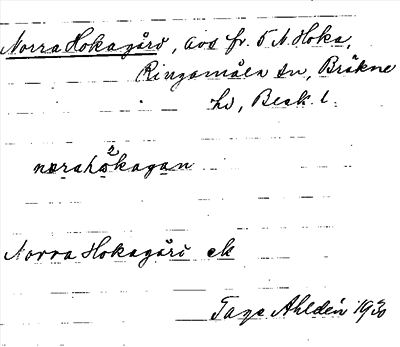 Norra Hokagård, avs fr. T N. Hoka,
Ringamåla sn, Bräkne
hd, Blek. l.
norahòkagan
Norra Hokagård ek
Tage Ahldén 1930